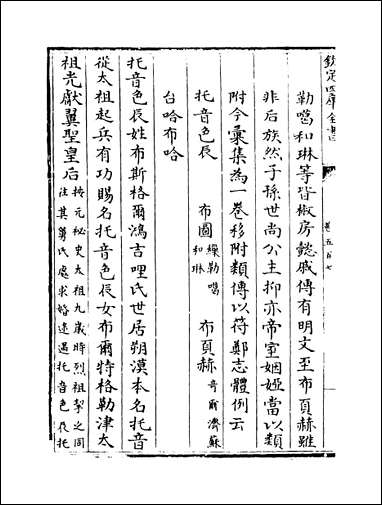 欽定四庫全書
卷五百七
勒噶和琳等皆椒房懿戚傳有明文至布頁赫雖
非后族然子孫世尚公主抑亦帝室姻婭當以類
附今彙集為一卷移附類傳以符鄭志體例云
托音色辰　布圖　勒噶　和琳　布頁赫　奇爾濟蘇
台哈布哈
托音色辰姓布斯格爾鴻吉哩氏世居朔漠本名托音
從太祖起兵有功賜名托音色辰女布爾特格勒津太
祖光獻翼聖皇后　按元秘史太祖九歲時烈祖挈之同
往其舅氏處求婚途遇托音色辰托